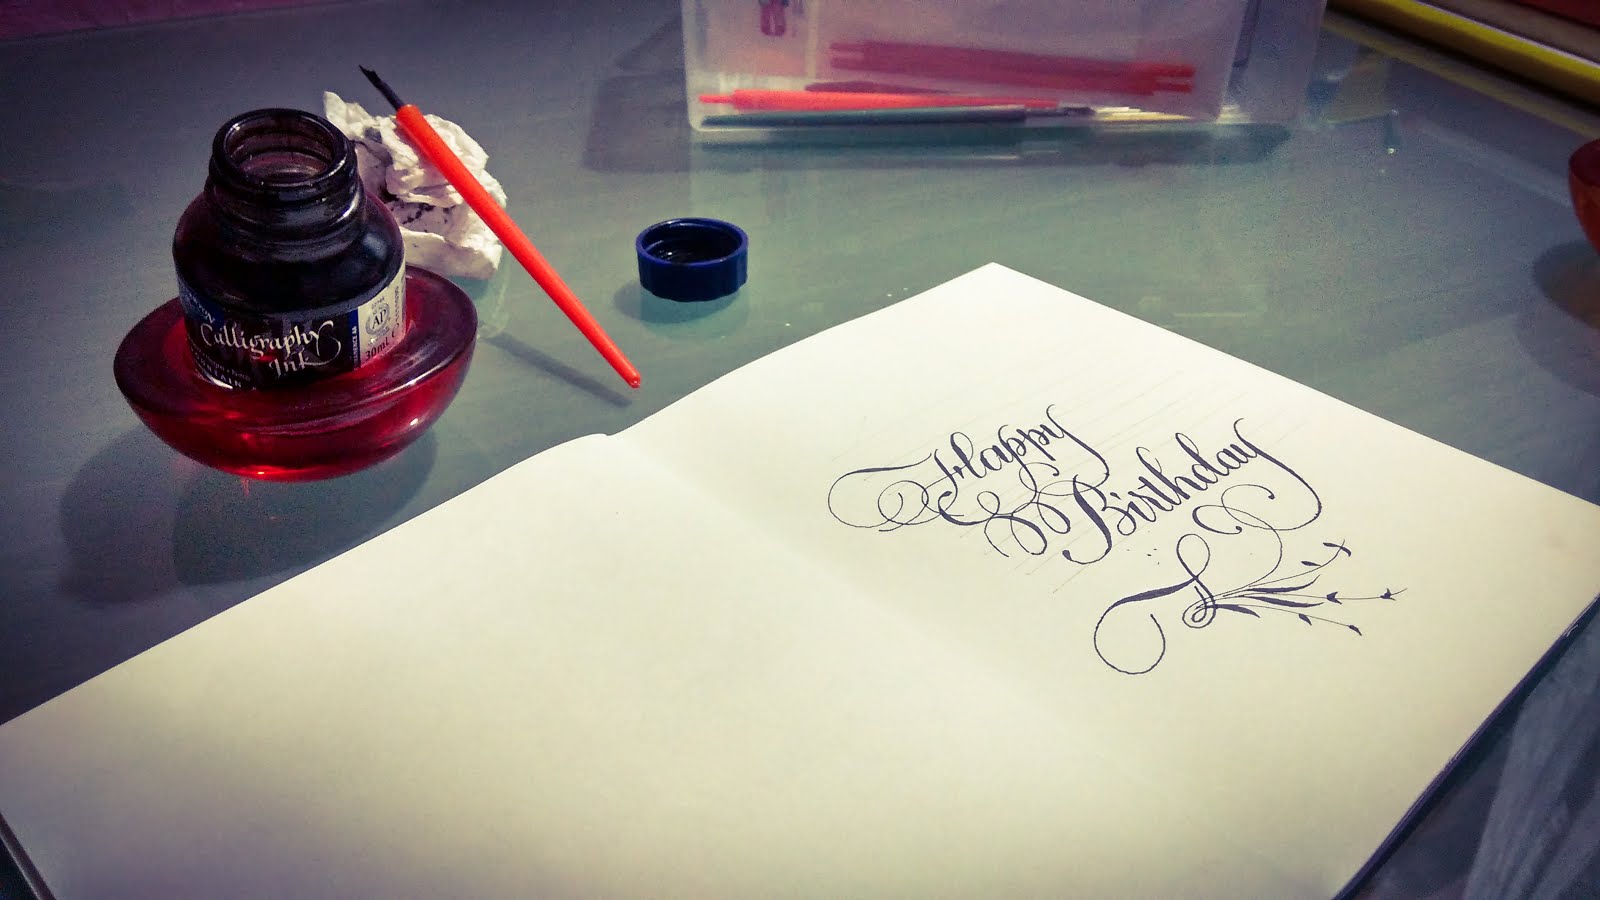 Calligraphy
Ink
AP
30ml
Happy
Birthday